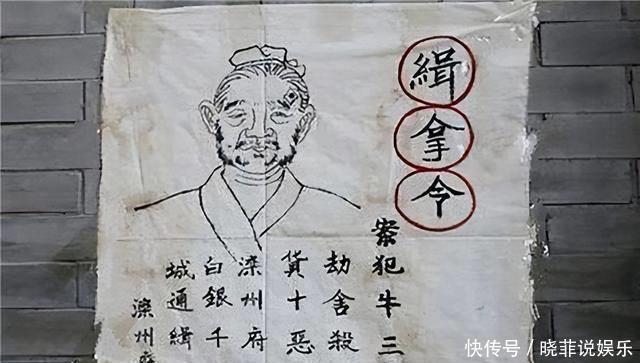 緝拿令
案犯牛三
劫舍殺
貨十惡
滦州府
白銀千
城通緝
滦州
快传号 / 晓菲说娱乐